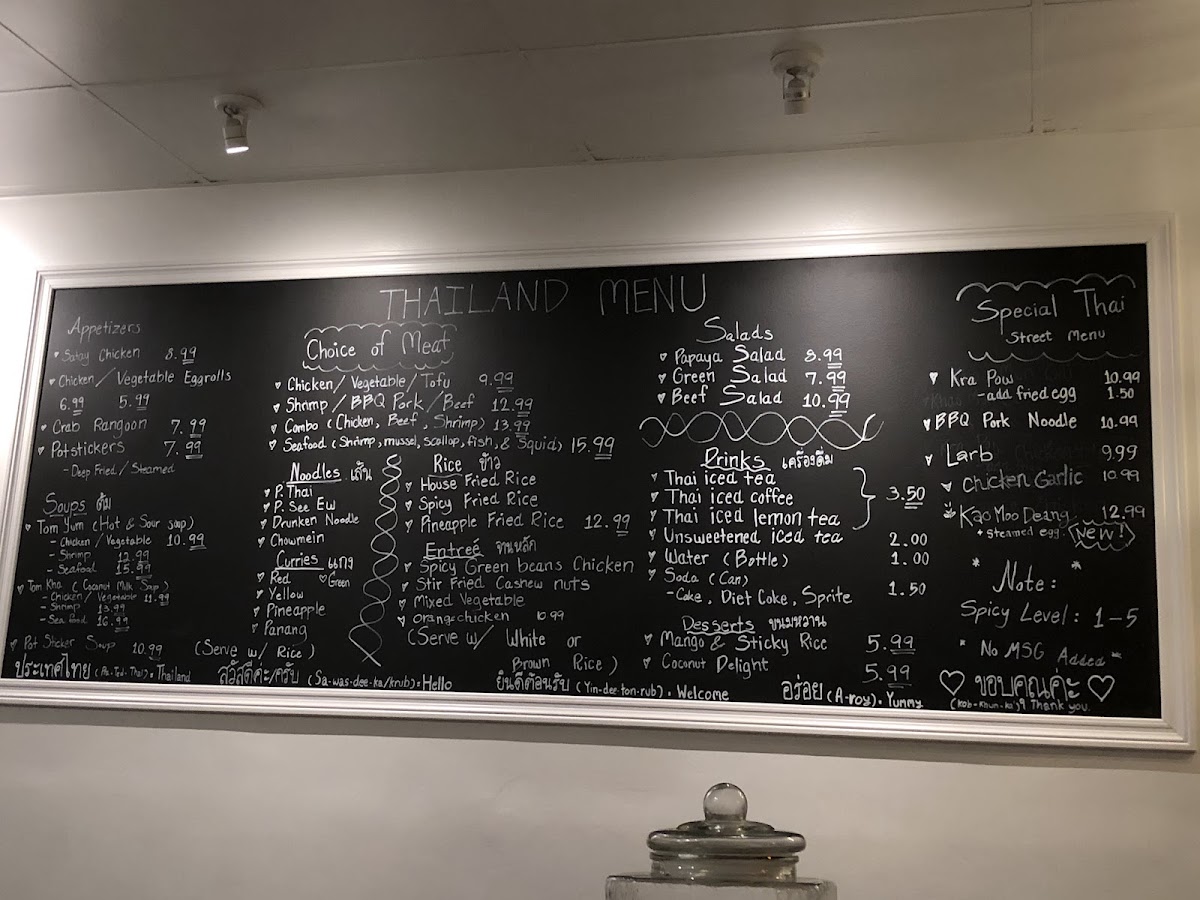 THAILAND MENU
Appetizers
Satay Chicken 8.99
Chicken/Vegetable Eggrolls
6.99 5.99
Crab Rangoon 7.99
Potstickers 7.99
- Deep Fried/Steamed
Soups ต้ม
Tom Yum (Hot & Sour soup)
- Chicken/Vegetable 10.99
- Shrimp 12.99
- Seafood 15.99
Tom Kha (Coconut Milk Soup)
- Chicken/Vegetable 11.99
- Shrimp 13.99
- Sea food 16.99
Pot Sticker Soup 10.99
Choice of Meat
Chicken/Vegetable/Tofu 9.99
Shrimp/BBQ Pork/Beef 12.99
Combo (Chicken, Beef, Shrimp) 13.99
Seafood (Shrimp, mussel, scallop, fish, & Squid) 15.99
Noodles เส้น
P. Thai
P. See Ew
Drunken Noodle
Chowmein
Curries แกง
Red Green
Yellow
Pineapple
Panang
(Serve w/ Rice)
Rice ข้าว
House Fried Rice
Spicy Fried Rice
Pineapple Fried Rice 12.99
Entreé จานหลัก
Spicy Green beans Chicken
Stir Fried Cashew nuts
Mixed Vegetable
Orange chicken 10.99
(Serve w/ White or
Brown Rice)
Salads
Papaya Salad 8.99
Green Salad 7.99
Beef Salad 10.99
Drinks เครื่องดื่ม
Thai iced tea
Thai iced coffee
Thai iced lemon tea
3.50
Unsweetened iced tea 2.00
Water (Bottle) 1.00
Soda (Can)
- Coke, Diet Coke, Sprite 1.50
Desserts ขนมหวาน
Mango & Sticky Rice 5.99
Coconut Delight 5.99
Special Thai
Street Menu
Kra Pow 10.99
- add fried egg 1.50
BBQ Pork Noodle 10.99
Larb 9.99
Chicken Garlic 10.99
Kao Moo Deang 12.99
+ steamed egg. New!
* Note: *
Spicy Level: 1-5
* No MSG Added *
ประเทศไทย = Thailand
สวัสดีค่ะ/ครับ (Sa-was-dee-ka/krub) = Hello
ยินดีต้อนรับ (Yin-dee-ton-rub) = Welcome
อร่อย (A-roy) = Yummy
ขอบคุณค่ะ
(kob-khun-ka) Thank you.